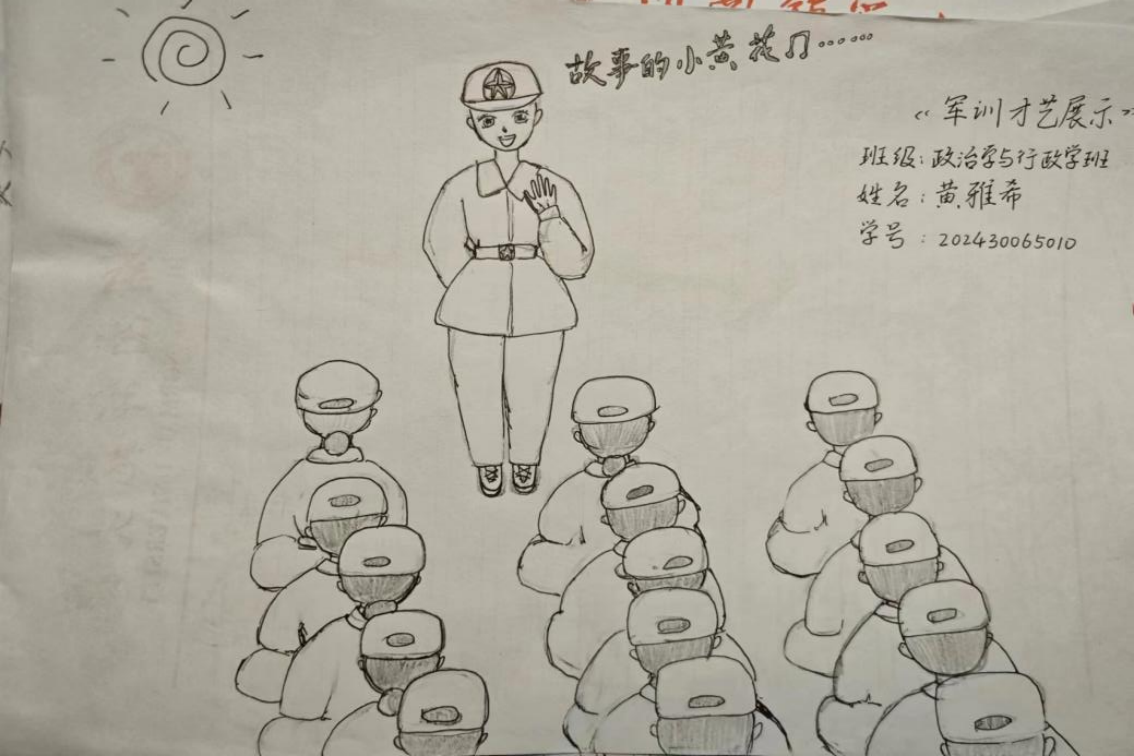 故事的小黄花♫……
《军训才艺展示》
班级:政治学与行政学班
姓名:黄雅希
学号:202430065010